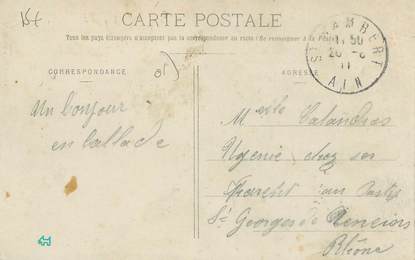 15f
CARTE POSTALE
Tous les pays étrangers n'acceptent pas la correspondance au recto (Se renseigner à la Poste)
CORRESPONDANCE
ADRESSE
LAMBERT
11 50
20 -6
11
AIN
Un bonjour
en ballade
Melle Calandras
Ugenie chez son
parent au
St Georges de Reneins
Rhône